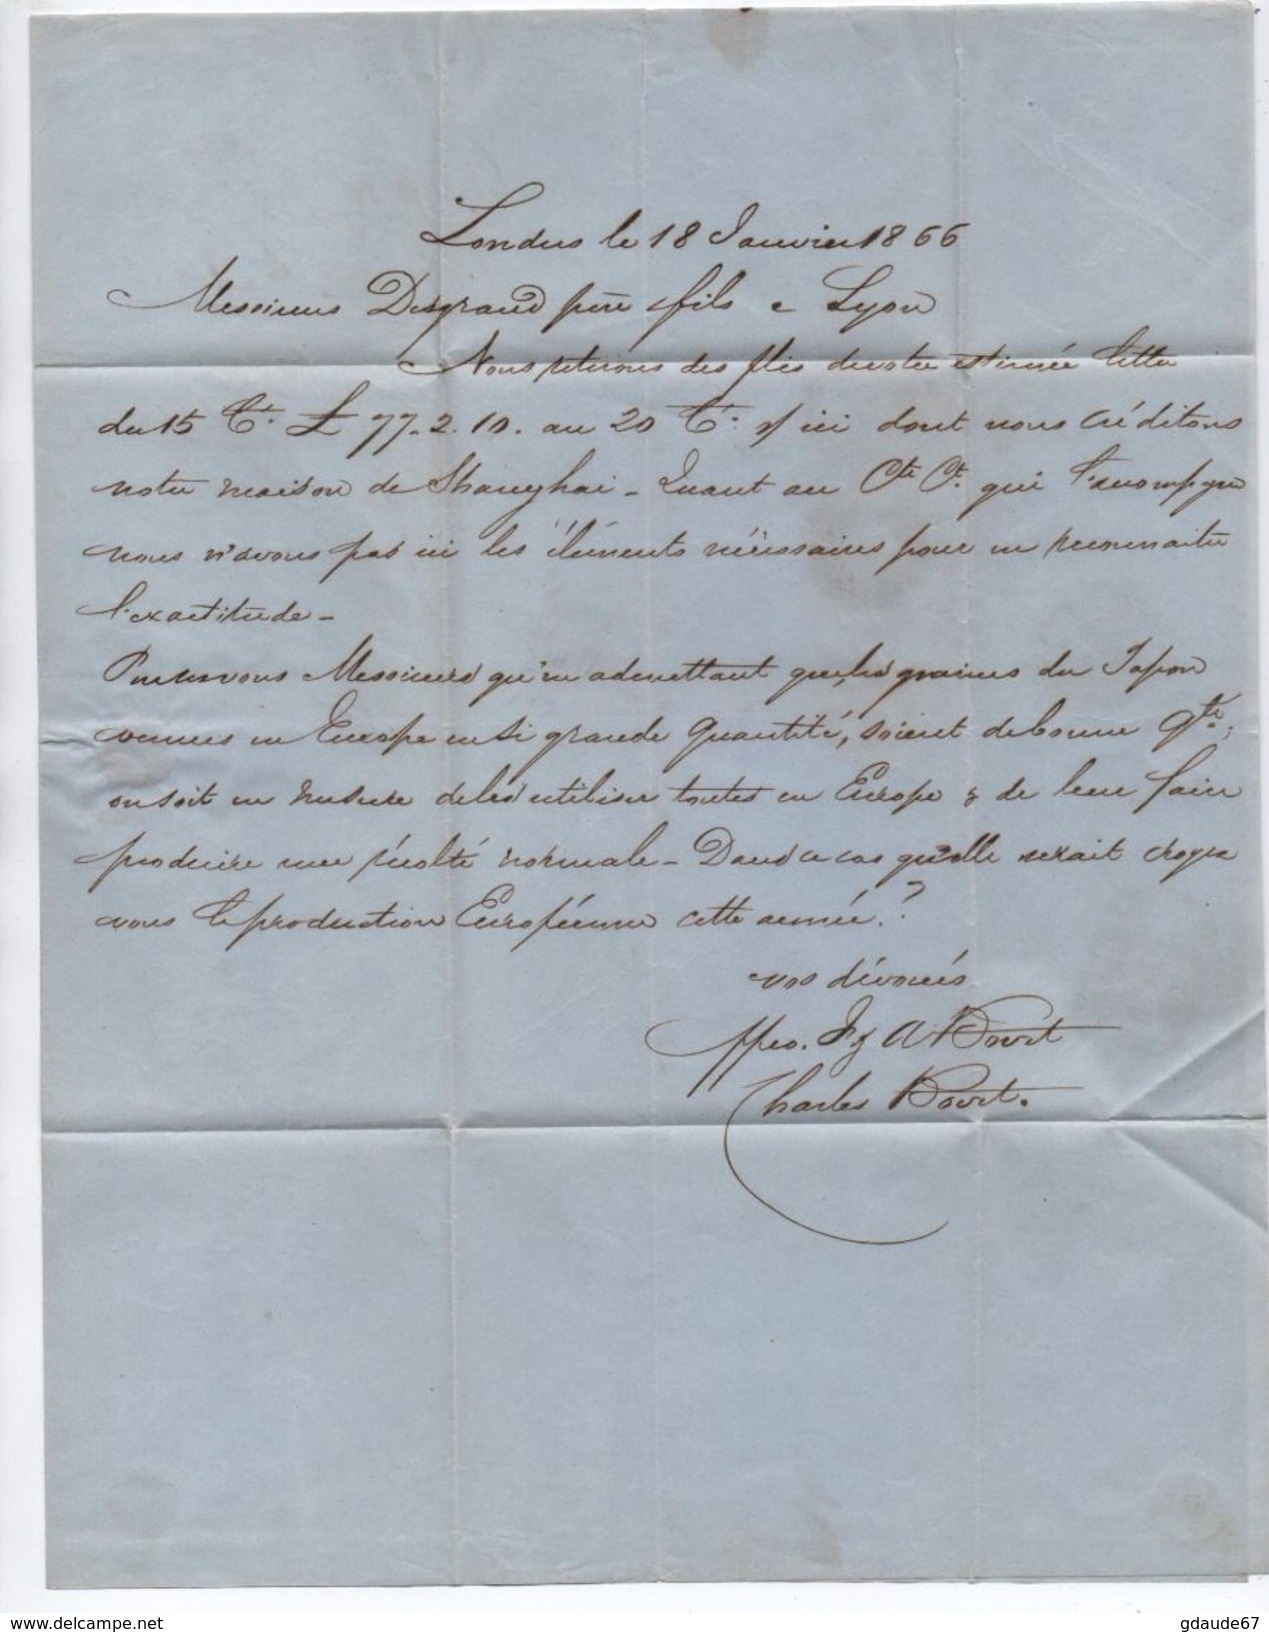 Londres le 18 Janvier 1866
Messieurs Desgrand père & fils à Lyon
Nous retirons des plis de votre estimée lettre
du 15 Ct. £ 77.2.10. au 20 Ct. s/ ici dont nous créditons
notre maison de Shanghai - Quant au Cte Ct. qui l'accompagne
nous n'avons pas ici les éléments nécessaires pour en reconnaitre
l'exactitude -
Pensez vous Messieurs qu'en admettant que les graines du Japon
venues en Europe en si grande quantité, soient de bonne qté,
on soit en mesure de les utiliser toutes en Europe & de leur faire
produire une récolte normale - Dans ce cas quelle serait croyez
vous la production Européenne cette année ?
vos dévoués
ppon. Fs A Bovet
Charles Bovet.
www.delcampe.net
gdaude67